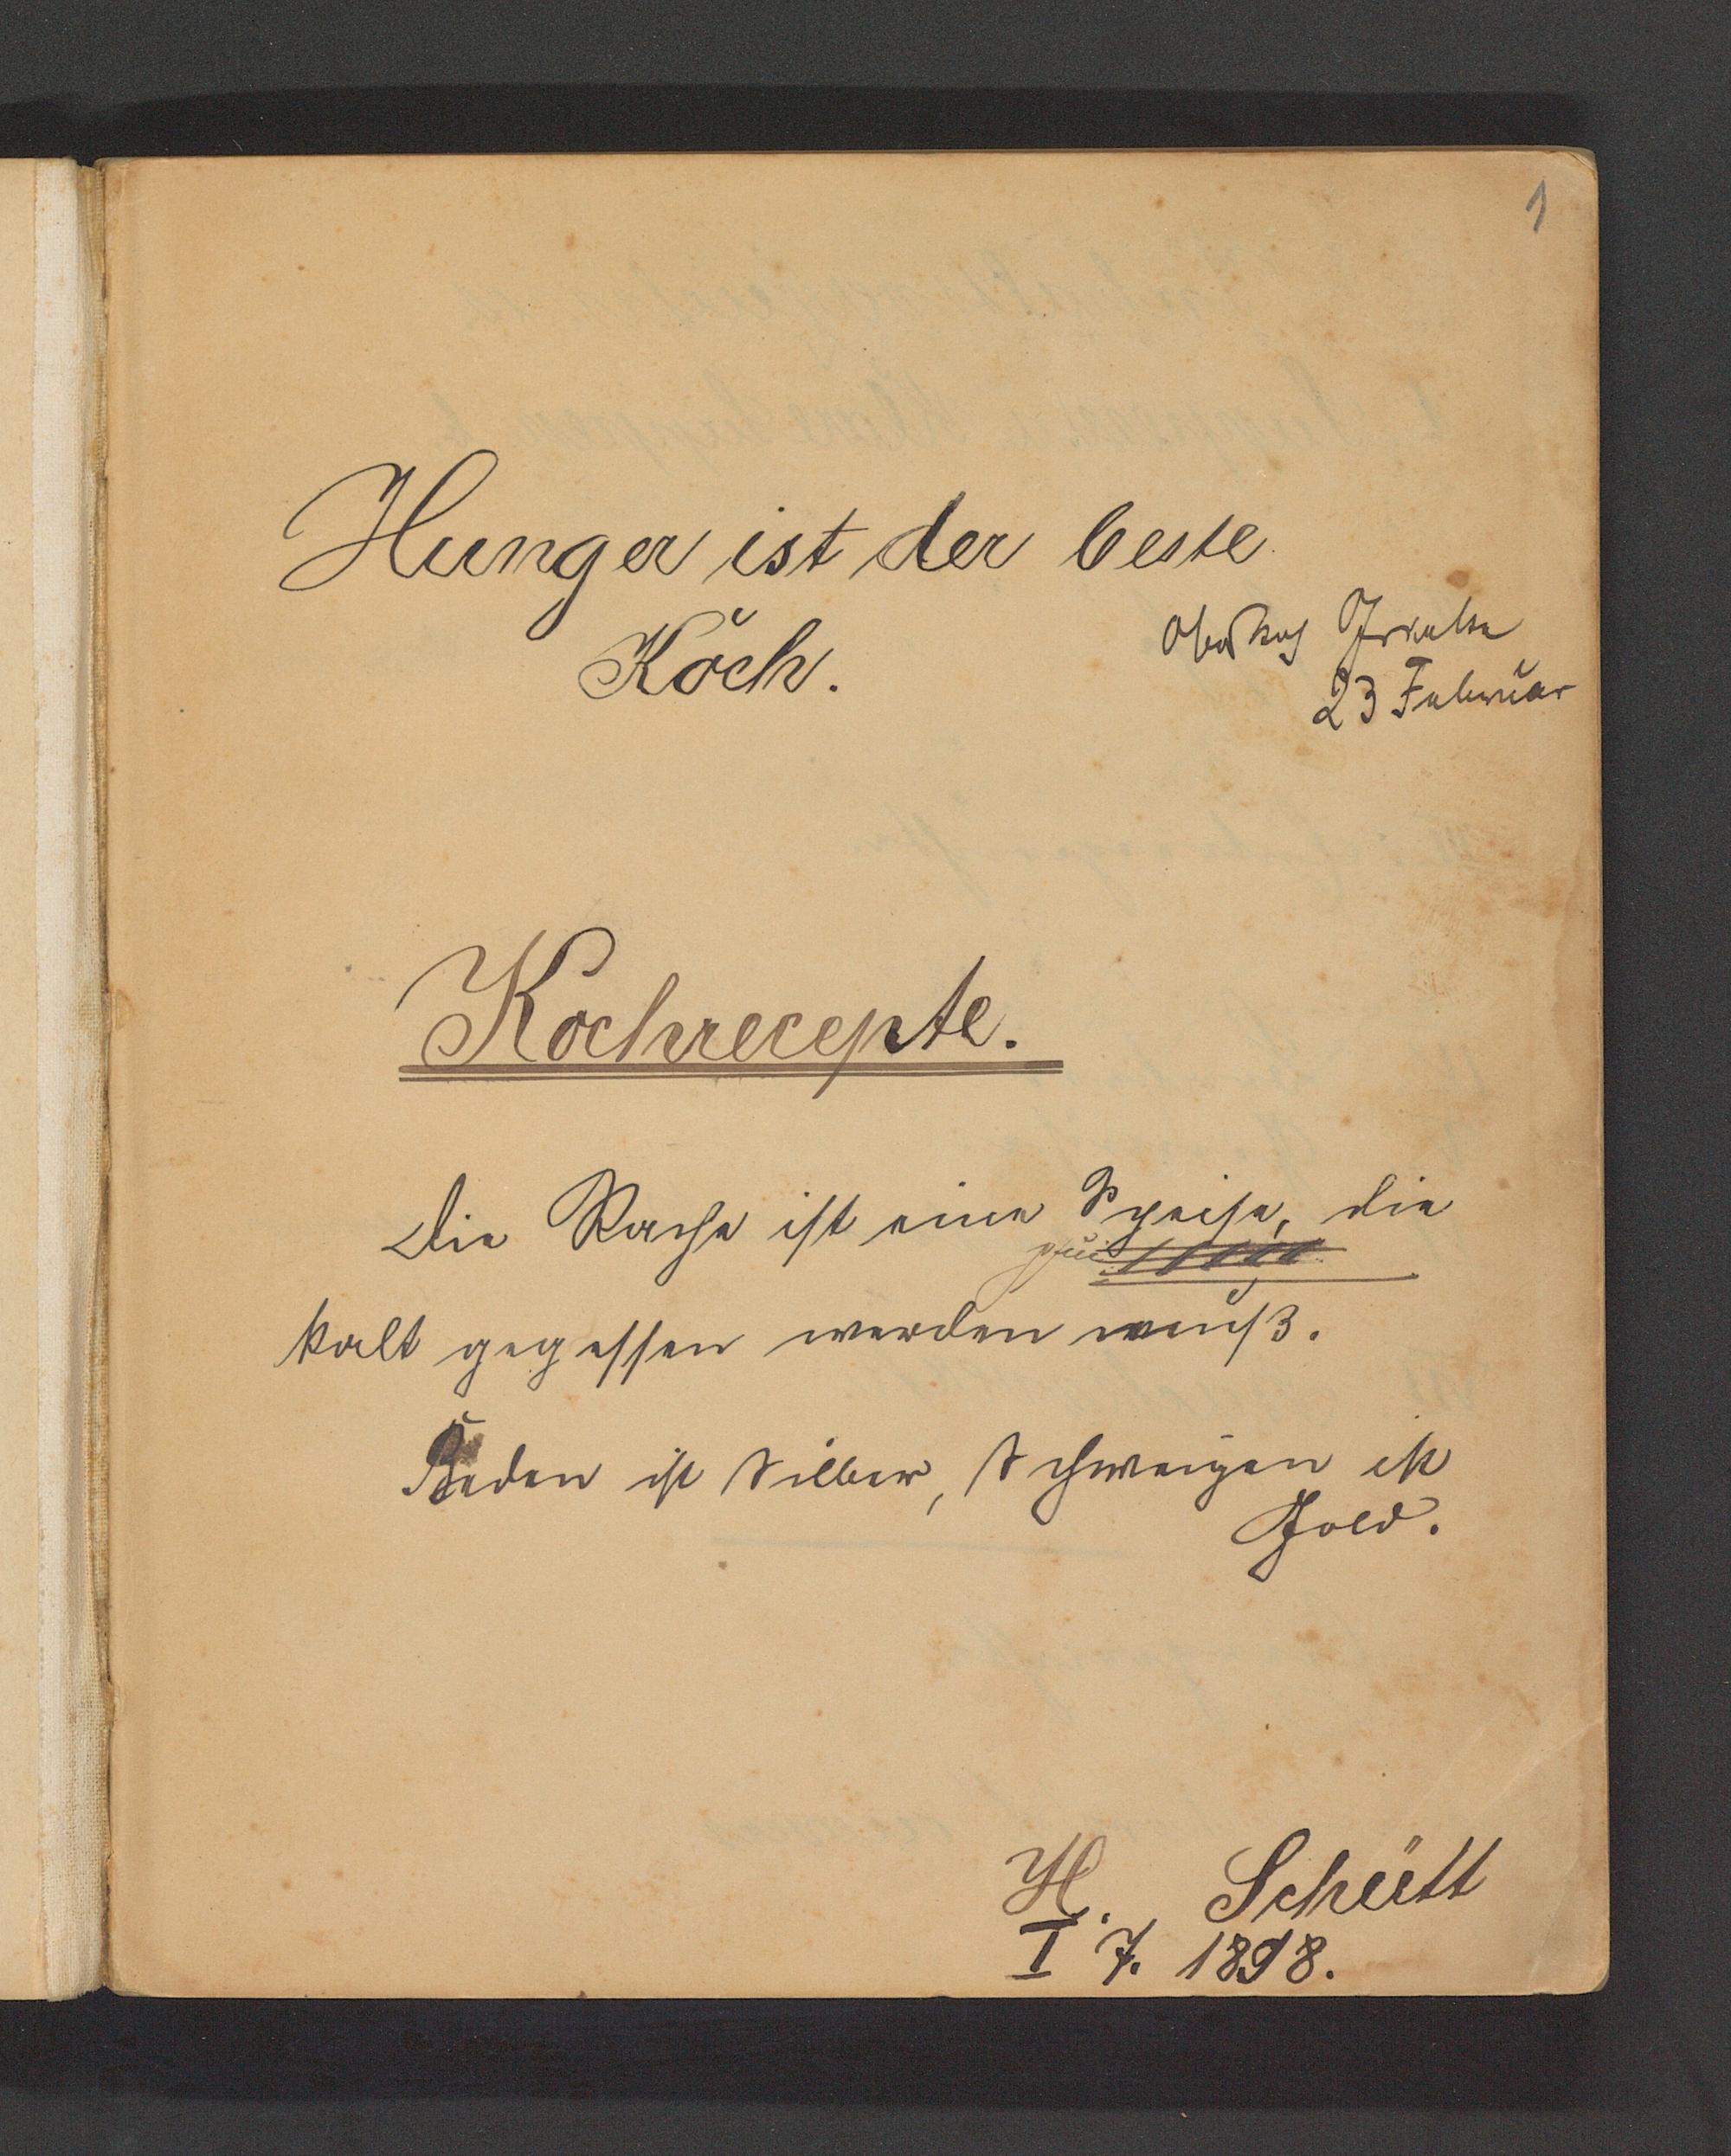 1
Hunger ist der beste
Koch.
23 Februar
Kochrecepte.
Die Rache ist eine Speise, die
pfui
kalt gegessen werden muß.
Reden ist Silber, Schweigen ist
Gold.
H. Schütt
I 7. 1898.